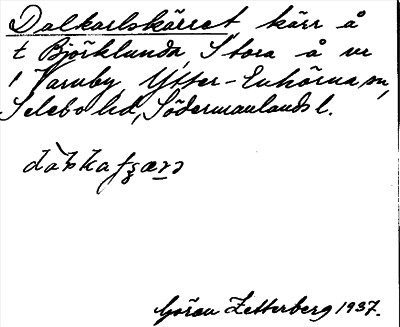 Dalkarlskärret kärr å
t Björklunda, Stora å vr
i Tarnby, Ytter-Enhörna sn,
Selebo hd, Södermanlands l.
Göran Zetterberg 1937.